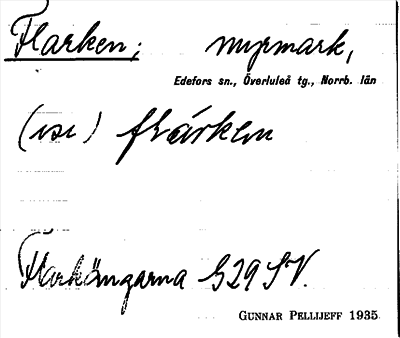 Flarken; myrmark,
Edefors sn., Överluleå tg., Norrb. län
(isı) flárken
Flarkängarna G29SV.
GUNNAR PELLIJEFF 1935